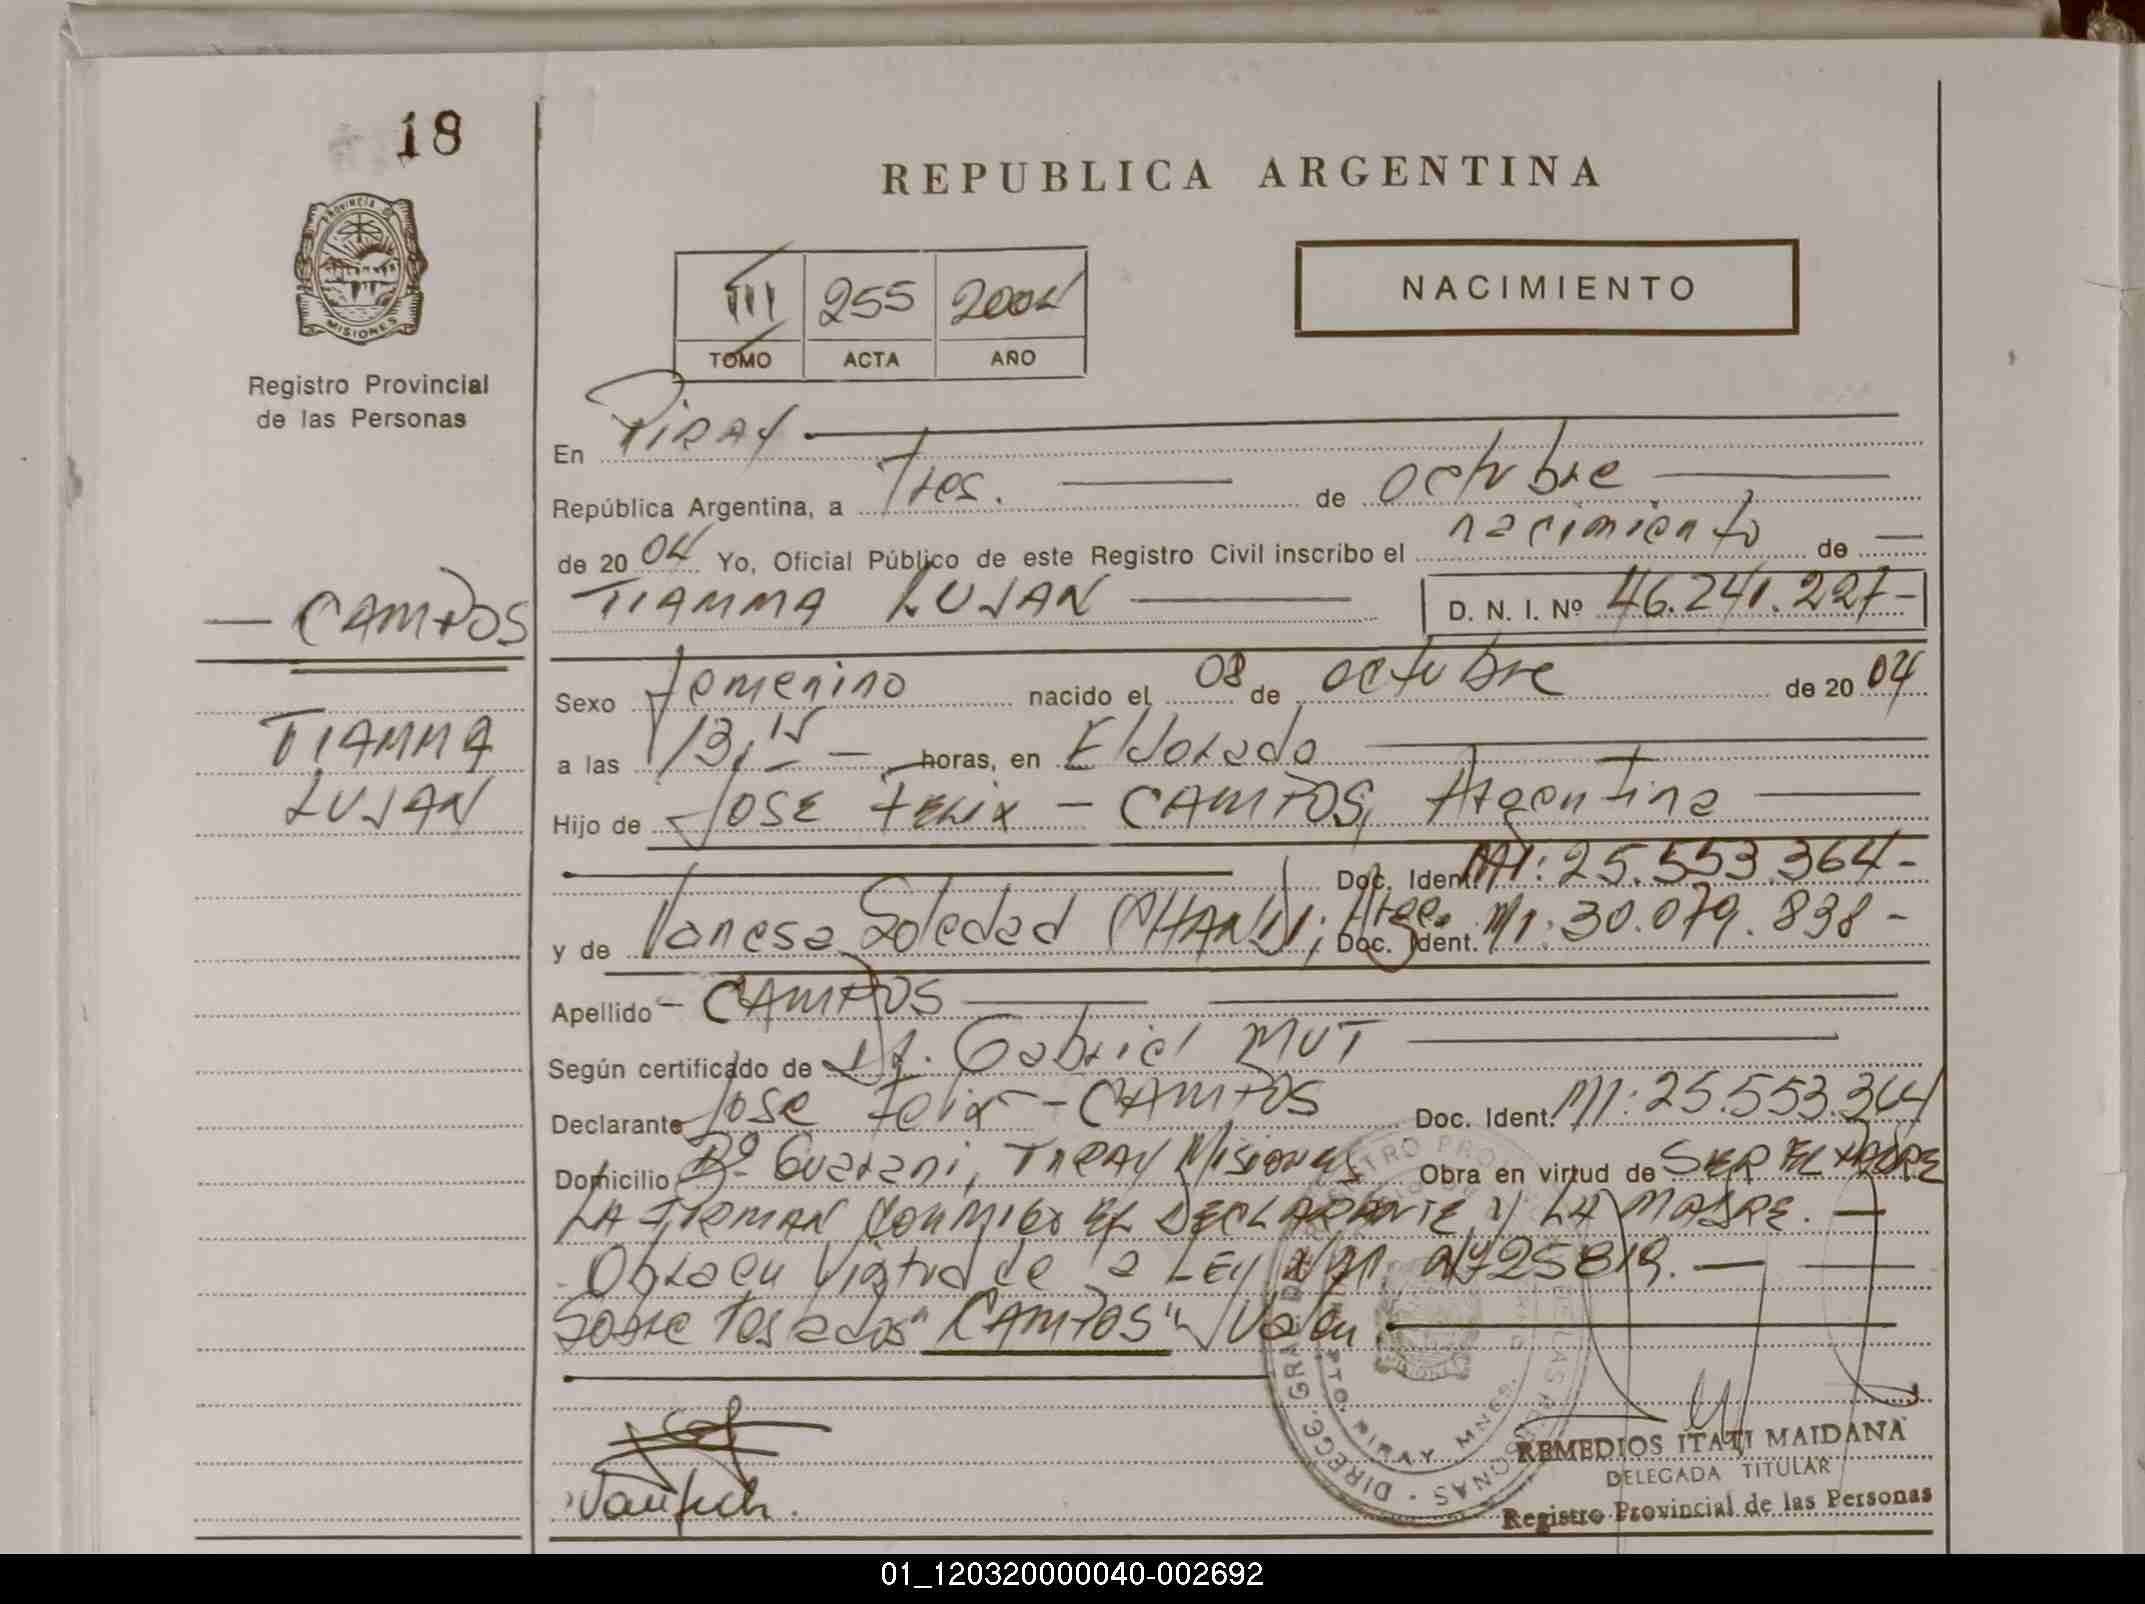 18
REPUBLICA ARGENTINA
PROVINCIA DE
MISIONES
Registro Provincial
de las Personas
III 255 2004
TOMO ACTA AÑO
NACIMIENTO
En PIRAY
República Argentina, a Tres. de octubre
de 2004 Yo, Oficial Público de este Registro Civil inscribo el nacimiento de
TIAMMA LUJAN D. N. I. Nº 46.241.227-
CAMPOS
TIAMMA
LUJAN
Sexo femenino nacido el 08 de octubre de 2004
a las 13,15 horas, en Eldorado
Hijo de JOSE FELIX - CAMPOS, Argentina
Doc. Ident. MI: 25.553.364-
y de Vanesa Soledad Doc. Ident. MI: 30.079.838-
Apellido - CAMPOS
Según certificado de Dr. Gabriel MUT
Declarante Jose Felix - CAMPOS Doc. Ident. MI: 25.553.364
Domicilio Bº Guarani, PIRAY Misiones Obra en virtud de SER EL PADRE
LA FIRMAN CONMIGO EL DECLARANTE y LA MADRE.
Obra en Virtud de la LEY 25819.
Sobre "CAMPOS" Valen
REMEDIOS ITATI MAIDANA
DELEGADA TITULAR
Registro Provincial de las Personas
PTO. PIRAY MNES.
01_120320000040-002692